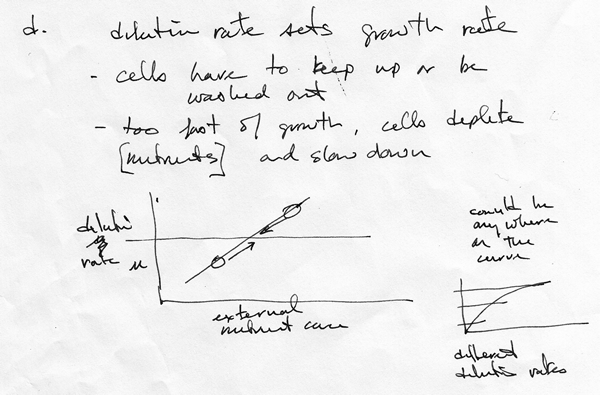 d. dilution rate sets growth rate
- cells have to keep up or be
washed out
- too fast of growth, cells deplete
[nutrients] and slow down
diluti
rate μ
external
nutrient conc
could be
any where
on the
curve
different
dilution rates